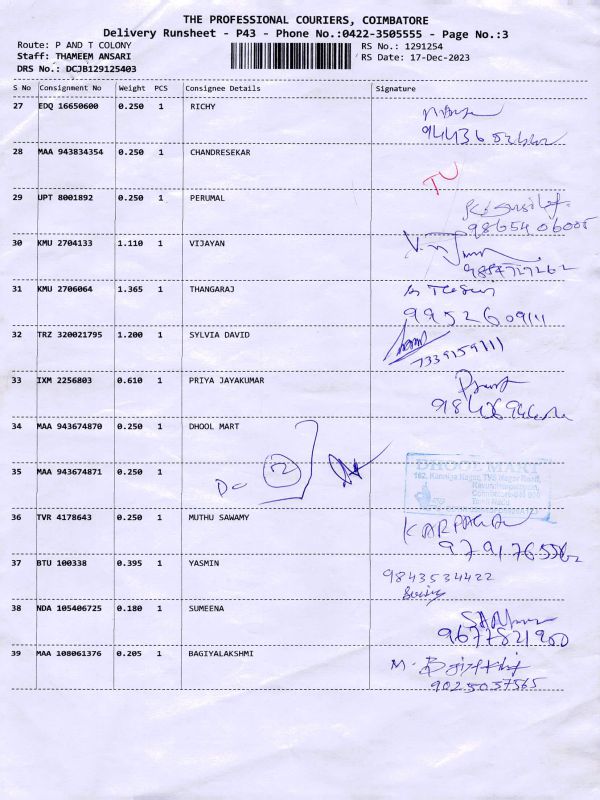 THE PROFESSIONAL COURIERS, COIMBATORE
Delivery Runsheet - P43 - Phone No.:0422-3505555 - Page No.:3
Route: P AND T COLONY
Staff: THAMEEM ANSARI
DRS No.: DCJB129125403
RS No.: 1291254
RS Date: 17-Dec-2023
S No Consignment No Weight PCS Consignee Details Signature
27 EDQ 16650600 0.250 1 RICHY
28 MAA 943834354 0.250 1 CHANDRESEKAR
TU
29 UPT 8001892 0.250 1 PERUMAL
9865406005
30 KMU 2704133 1.110 1 VIJAYAN
31 KMU 2706064 1.365 1 THANGARAJ
32 TRZ 320021795 1.200 1 SYLVIA DAVID
7339159111
33 IXM 2256803 0.610 1 PRIYA JAYAKUMAR
34 MAA 943674870 0.250 1 DHOOL MART
35 MAA 943674871 0.250 1
DC 2
DHOOL MART
36 TVR 4178643 0.250 1 MUTHU SAWAMY
37 BTU 100338 0.395 1 YASMIN
9843534422
38 NDA 105406725 0.180 1 SUMEENA
9677821900
39 MAA 108061376 0.205 1 BAGIYALAKSHMI
9025057565